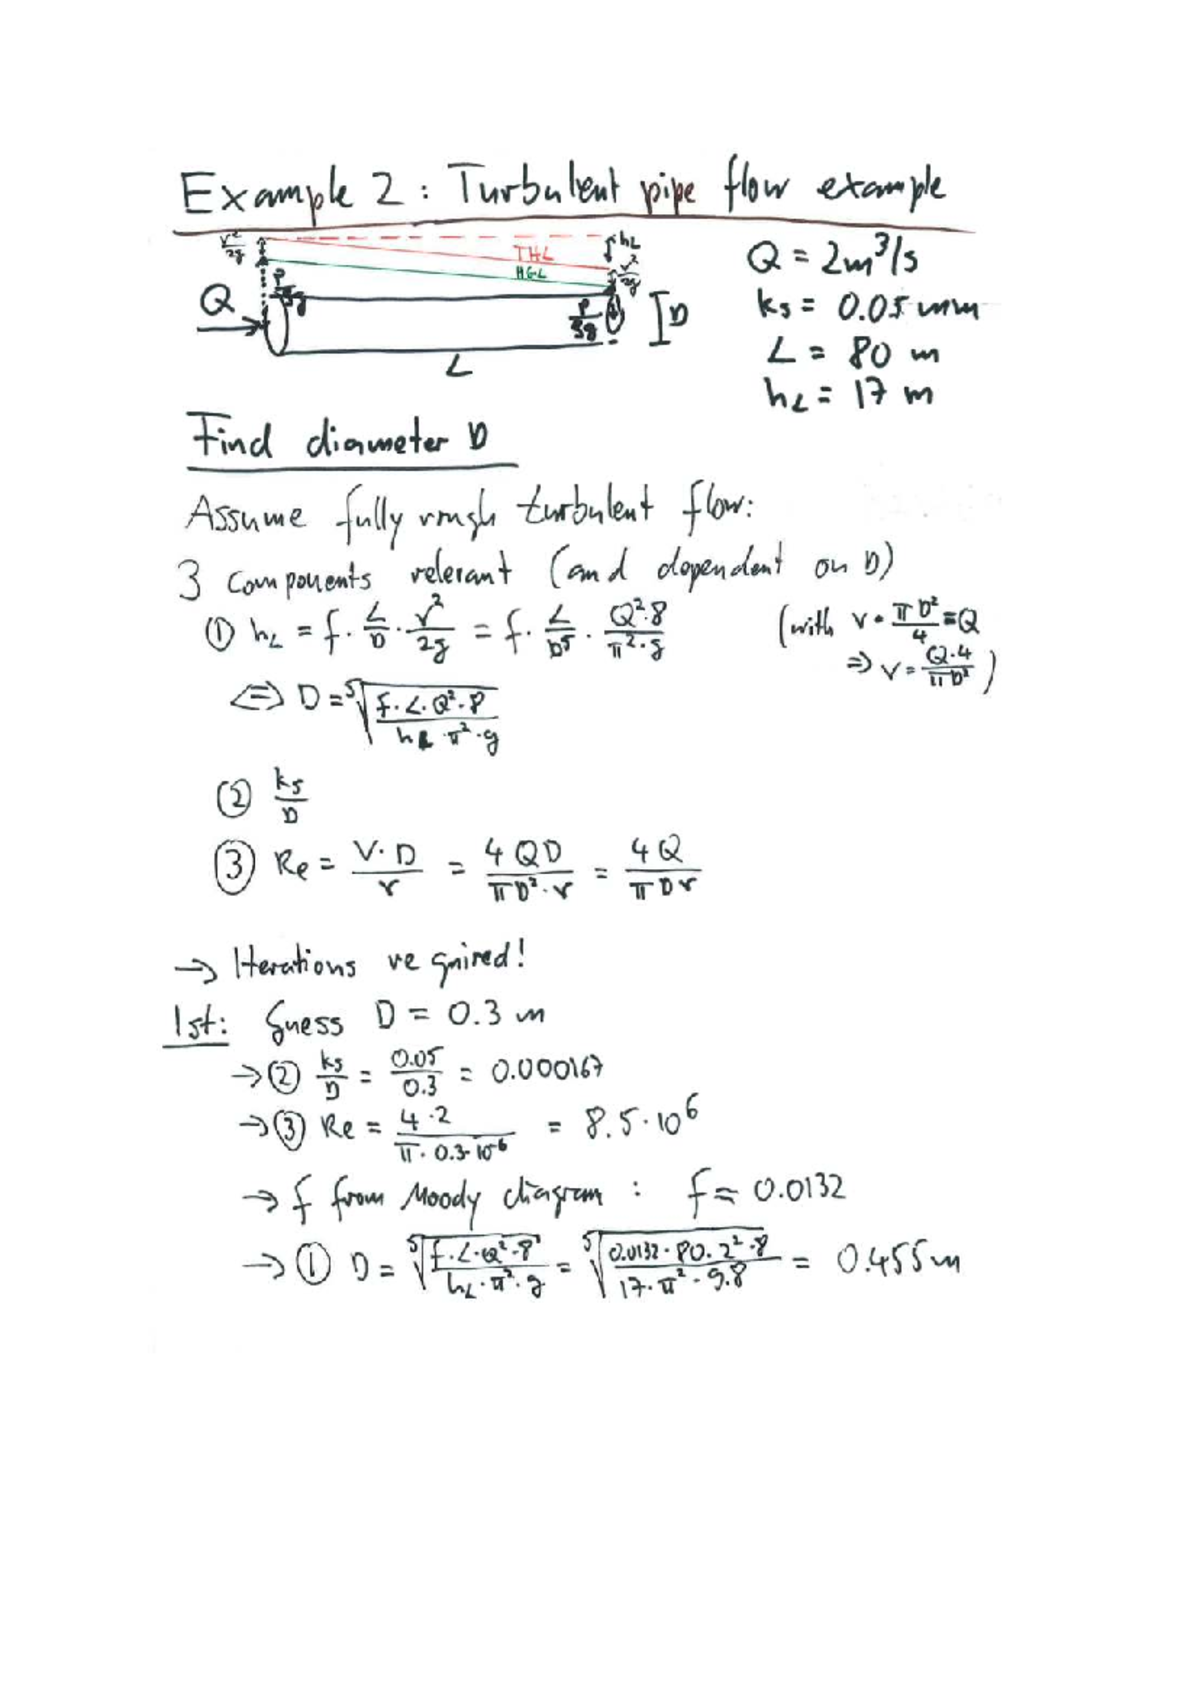 Example 2: Turbulent pipe flow example
v²/2g
hL
THL
HGL
v²/2g
P/ρg
Q
P/ρg
D
L
Q = 2m³/s
ks = 0.05 mm
L = 80 m
hL = 17 m
Find diameter D
Assume fully rough turbulent flow:
3 components relevant (and dependent on D)
① hL = f · L/D · v²/2g = f · L/D⁵ · Q²·8/π²·g (with v · πD²/4 = Q
⇒ v = Q·4/πD²)
⇔ D = ⁵√(f·L·Q²·8 / hL·π²·g)
② ks/D
③ Re = V·D/ν = 4QD/πD²·ν = 4Q/πDν
→ Iterations required!
1st: Guess D = 0.3 m
→ ② ks/D = 0.05/0.3 = 0.000167
→ ③ Re = 4·2/π·0.3·10⁻⁶ = 8.5·10⁶
→ f from Moody diagram: f ≈ 0.0132
→ ① D = ⁵√(f·L·Q²·8 / hL·π²·g) = ⁵√(0.0132·80·2²·8 / 17·π²·9.8) = 0.455m